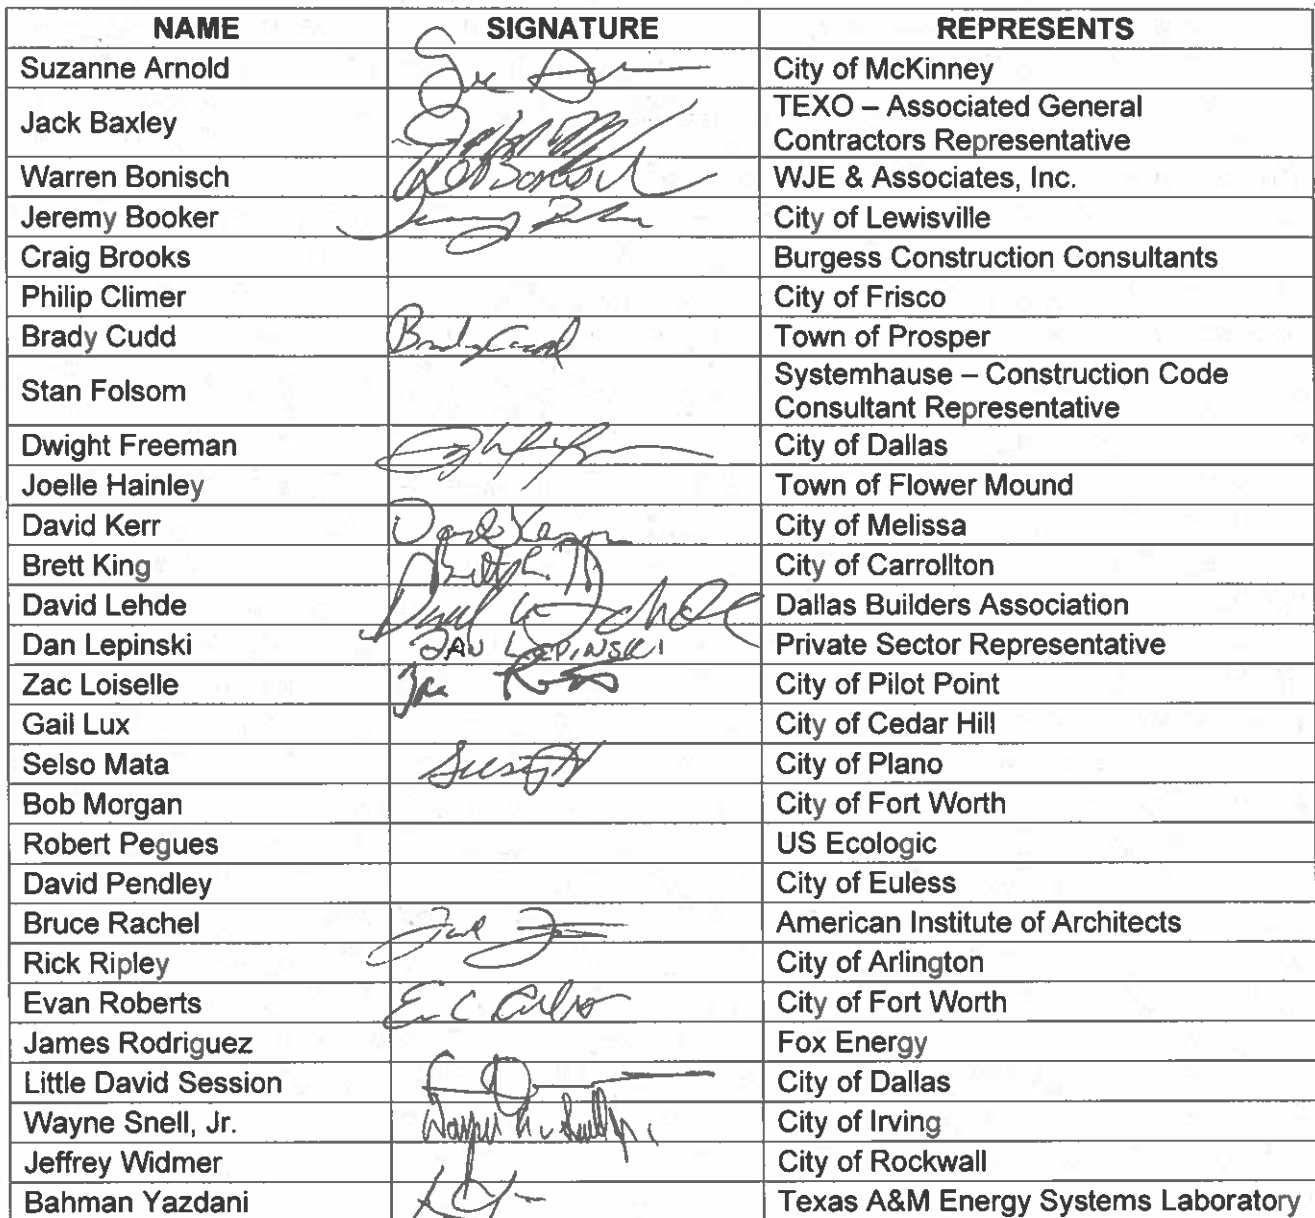 NAME SIGNATURE REPRESENTS
Suzanne Arnold City of McKinney
Jack Baxley TEXO – Associated General
Contractors Representative
Warren Bonisch WJE & Associates, Inc.
Jeremy Booker City of Lewisville
Craig Brooks Burgess Construction Consultants
Philip Climer City of Frisco
Brady Cudd Brady Cudd Town of Prosper
Stan Folsom Systemhause – Construction Code
Consultant Representative
Dwight Freeman City of Dallas
Joelle Hainley Town of Flower Mound
David Kerr David Kerr City of Melissa
Brett King City of Carrollton
David Lehde Dallas Builders Association
Dan Lepinski DAN LEPINSKI Private Sector Representative
Zac Loiselle City of Pilot Point
Gail Lux City of Cedar Hill
Selso Mata City of Plano
Bob Morgan City of Fort Worth
Robert Pegues US Ecologic
David Pendley City of Euless
Bruce Rachel American Institute of Architects
Rick Ripley City of Arlington
Evan Roberts City of Fort Worth
James Rodriguez Fox Energy
Little David Session City of Dallas
Wayne Snell, Jr. City of Irving
Jeffrey Widmer City of Rockwall
Bahman Yazdani Texas A&M Energy Systems Laboratory